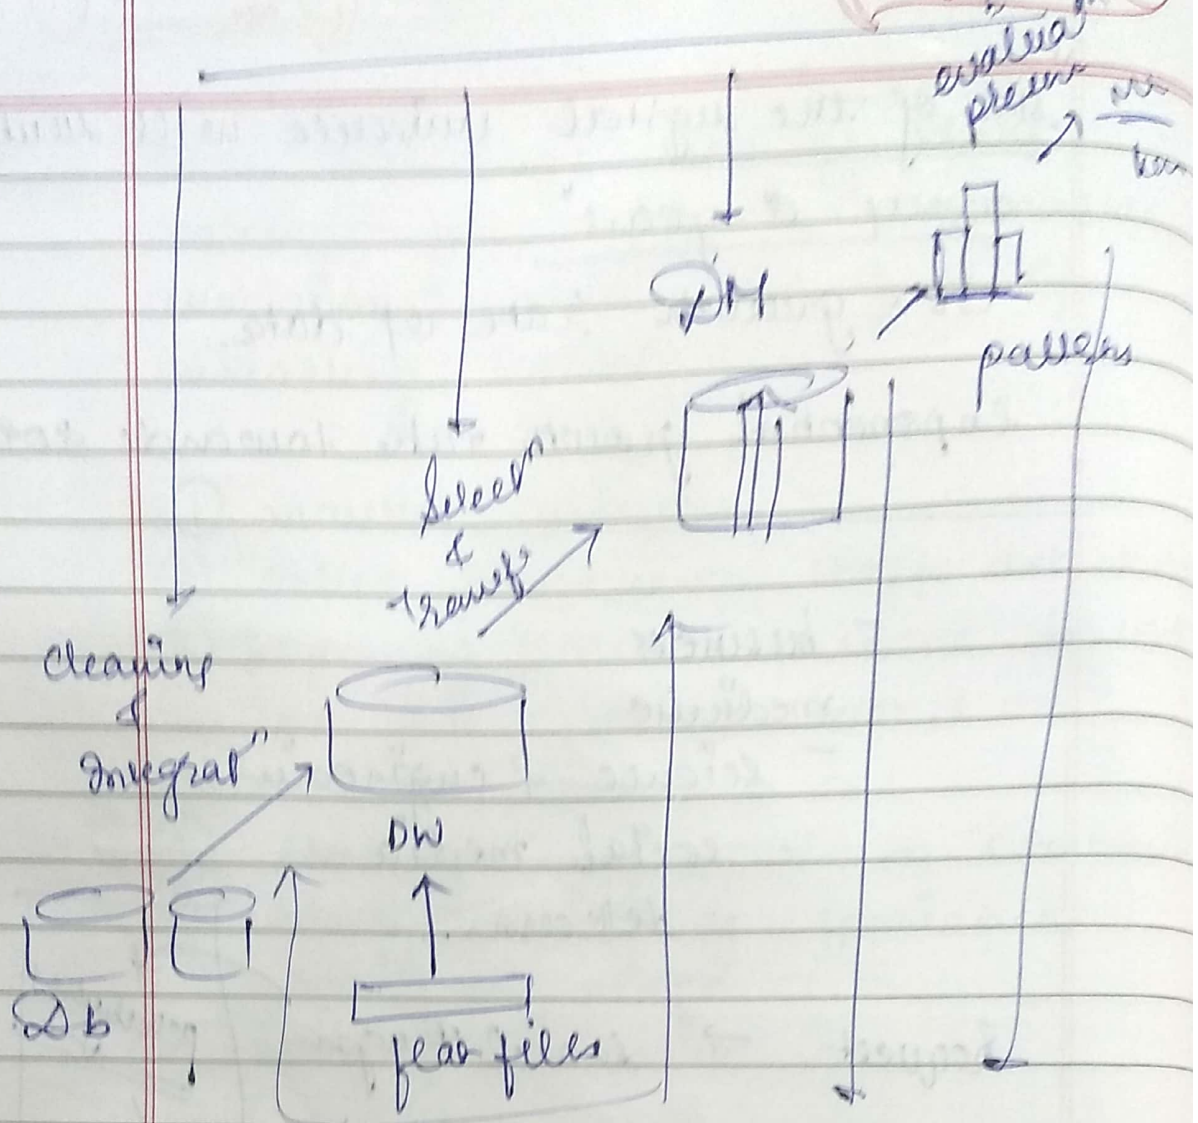 evaluaⁿ
presen
DM
patterns
Selecⁿ
&
transf.
cleaning
&
Integratⁿ
DW
Db
flat files